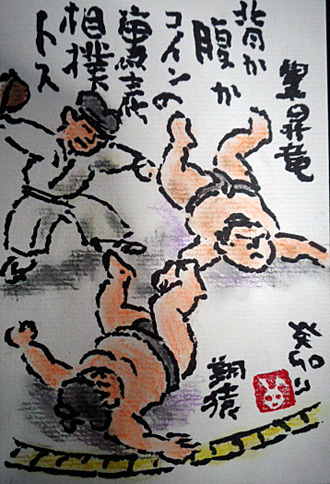 背か
腹か
コインの
裏表
相撲
トス
豊昇竜
翔猿
癸卯